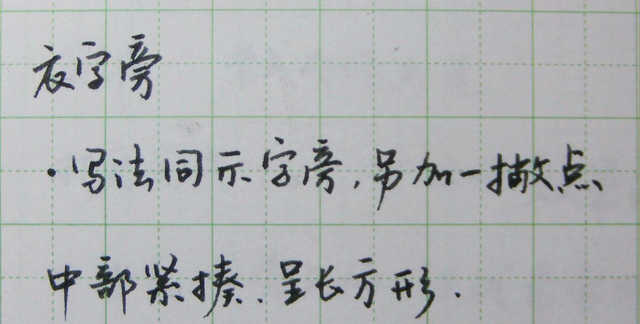 衣字旁
·写法同示字旁,另加一撇点
中部紧揍.呈长方形.